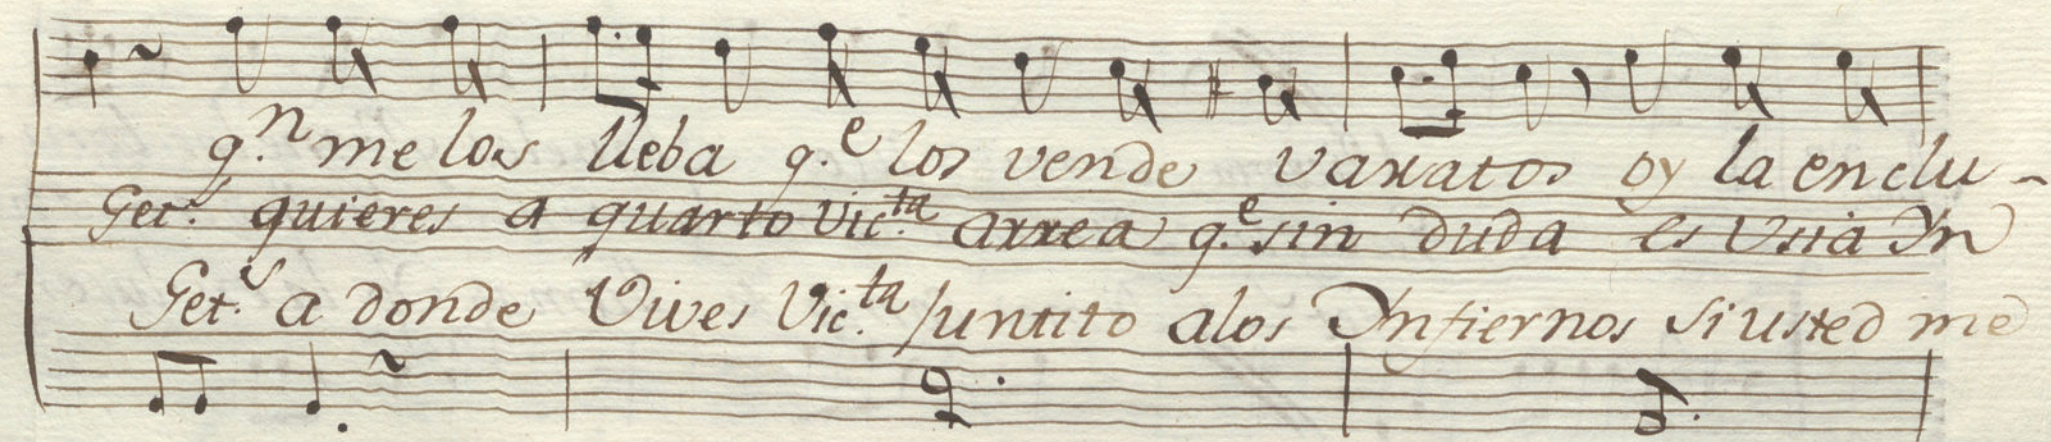 q.n me los lleba q.e los vende varatos oy la enclu-
Get.s quieres a quarto Vic.ta arrea q.e sin duda es Usia Yn
Get.s a donde Vives Vic.ta juntito a los Ynfiernos si usted me